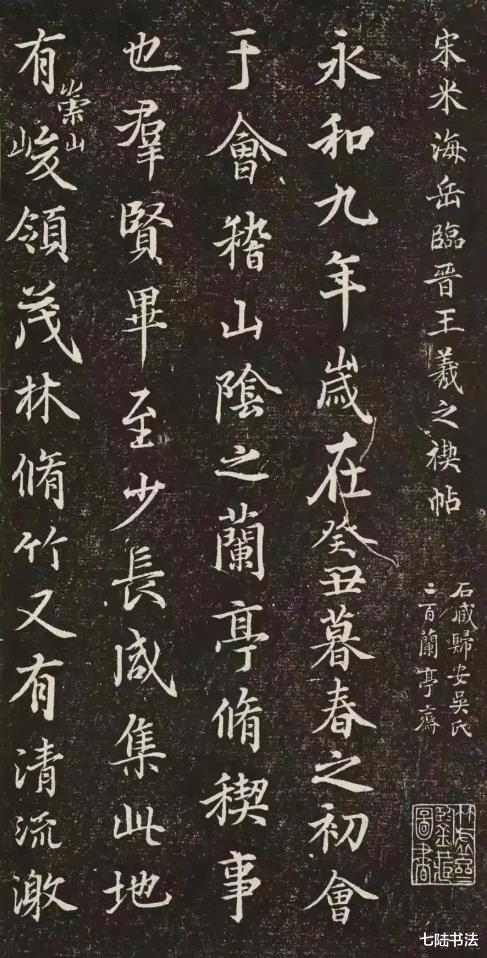 宋米海岳臨晉王羲之禊帖
石藏歸安吳氏
二百蘭亭齋
永和九年歲在癸丑暮春之初會
于會稽山陰之蘭亭脩稧事
也羣賢畢至少長咸集此地
有崇山峻領茂林脩竹又有清流激
七陆书法